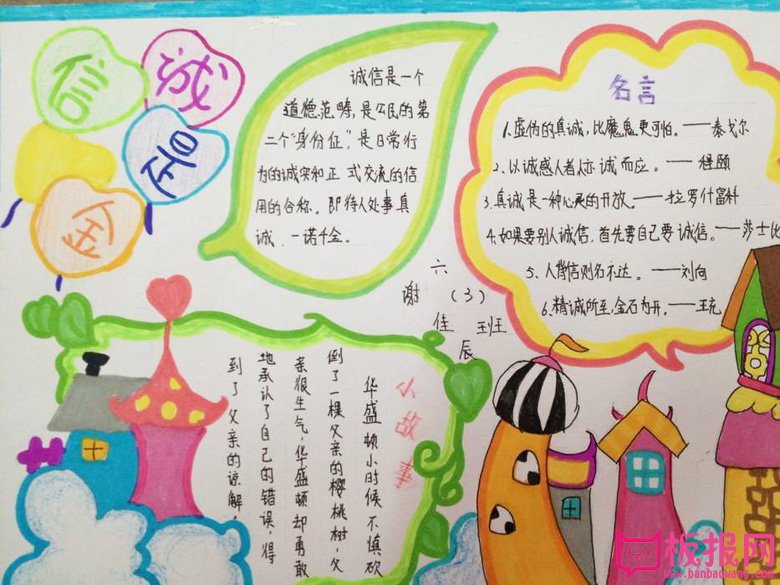 诚信是金
诚信是一个
道德范畴,是公民的第
二个"身份证",是日常行
为的诚实和正式交流的信
用的合称。即待人处事真
诚,一诺千金。
名言
1.虚伪的真诚,比魔鬼更可怕。——泰戈尔
2.以诚感人者人亦诚而应。——程颐
3.真诚是一种心灵的开放。——拉罗什富科
4.如果要别人诚信,首先要自己要诚信。——莎士比
5.人背信则名不达。——刘向
6.精诚所至,金石为开。——王充
六(3)班
谢佳辰
小故事
华盛顿小时候不慎砍
倒了一棵父亲的樱桃树,父
亲很生气,华盛顿却勇敢
地承认了自己的错误,得
到了父亲的谅解。
板报网
www.banbaowang.com